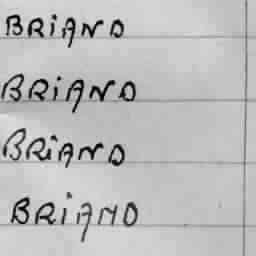 BRiAND
BRiAND
BRiAND
BRiAND